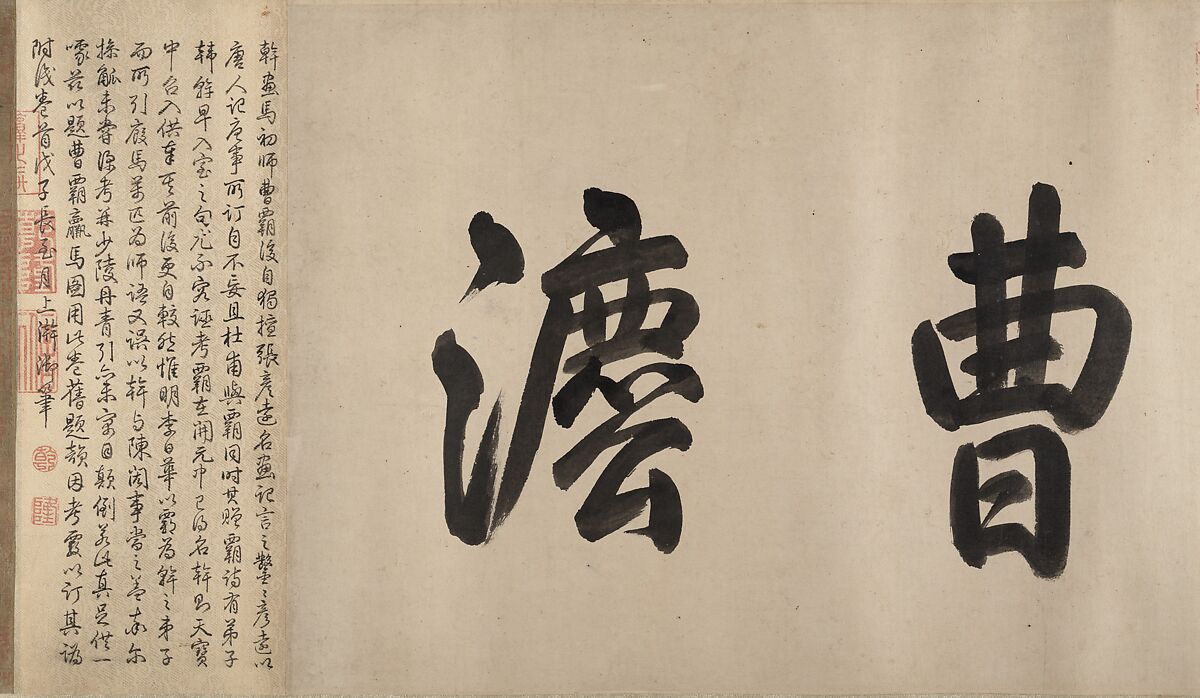 曹灋
幹畫馬初師曹霸後自獨擅張彥遠名畫記言之鑿〻彥遠以
唐人記唐事所訂自不妄且杜甫與霸同時其贈霸詩有弟子
韓幹早入室之句尤不容誣考霸在開元中已得名幹則天寶
中召入供奉其前後更自較然惟明李日華以霸為幹之弟子
而所引廄馬萬匹為師語又誤以幹与陳閎事當之蓋率尔
操觚未嘗深考并少陵丹青引亦未寓目顛倒若此真足供一
噱茲以題曹霸羸馬圖用此卷舊題韻因考覈以訂其譌
附識卷首戊子長至月上澣御筆
乾
隆